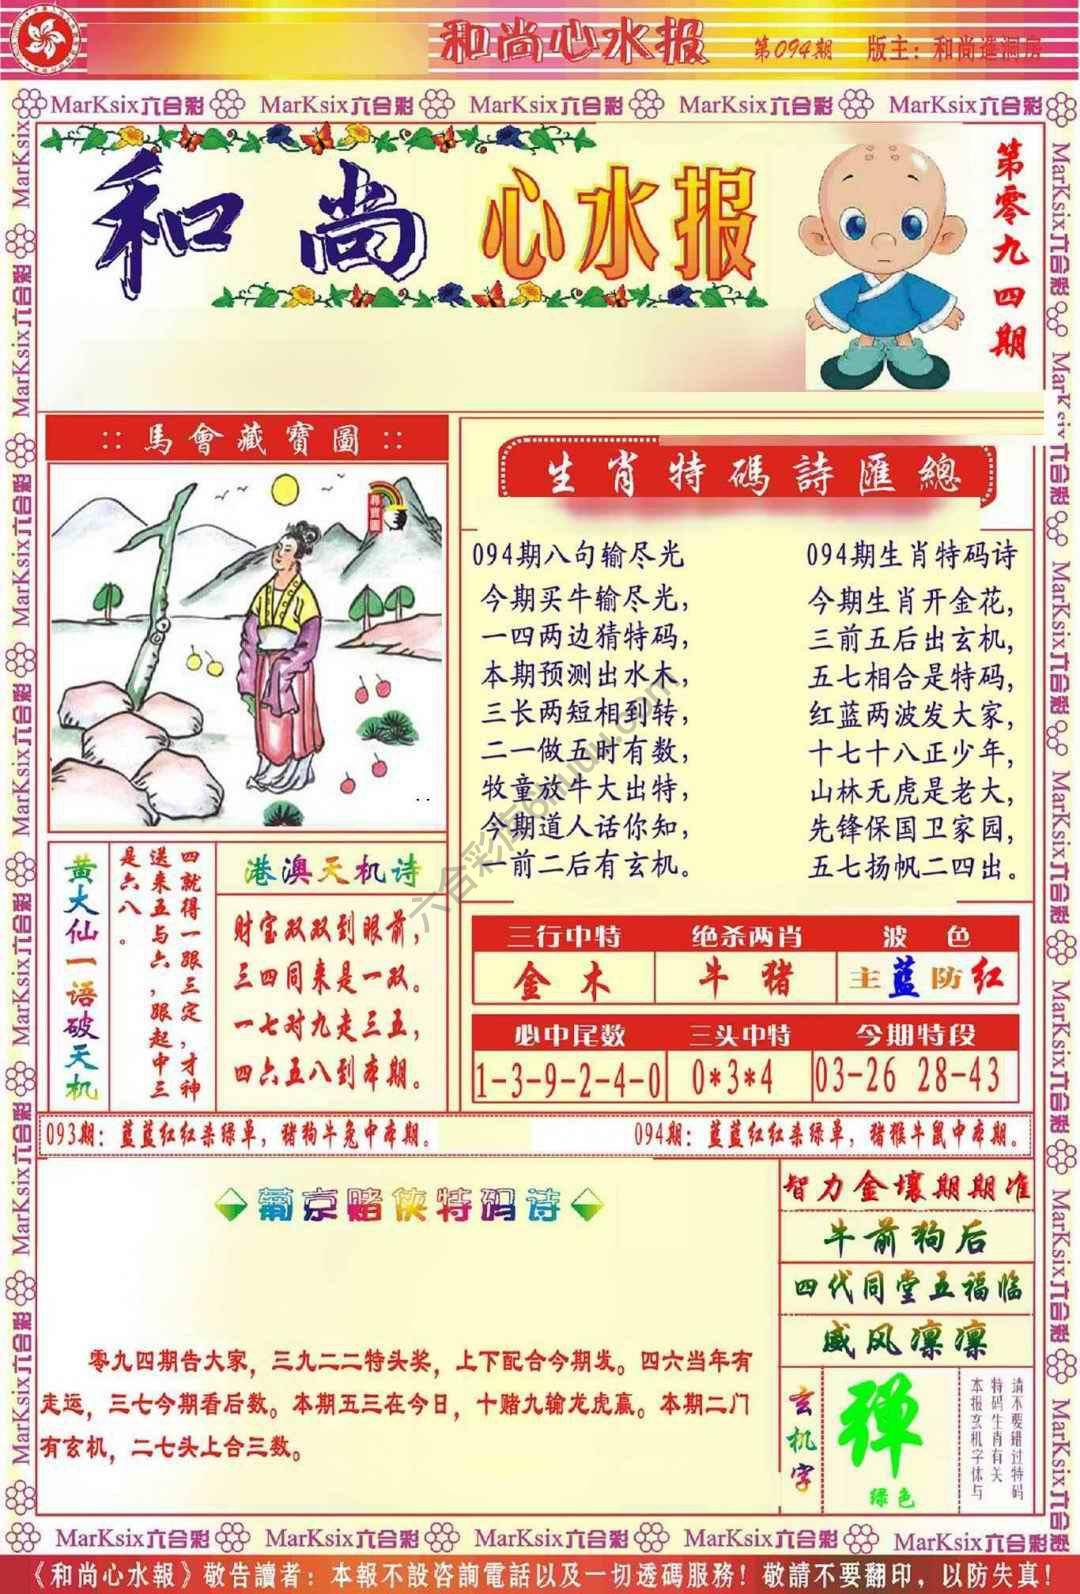 和尚心水报 第094期 版主：和尚進洞房
MarKsix六合彩 MarKsix六合彩 MarKsix六合彩 MarKsix六合彩 MarKsix六合彩
和尚心水报
第零九四期
::馬會藏寶圖::
尋寶圖
生肖特碼詩匯總
094期八句输尽光
今期买牛输尽光,
一四两边猜特码,
本期预测出水木,
三长两短相到转,
二一做五时有数,
牧童放牛大出特,
今期道人话你知,
一前二后有玄机。
094期生肖特码诗
今期生肖开金花,
三前五后出玄机,
五七相合是特码,
红蓝两波发大家,
十七十八正少年,
山林无虎是老大,
先锋保国卫家园,
五七扬帆二四出。
六合彩库6huu.com
黄大仙一语破天机
四就得一跟三定,才神
送来五与六,跟起中三
是六八。
港澳天机诗
财宝双双到眼前,
三四同来是一双。
一七对九走三五,
四六五八到本期。
三行中特 绝杀两肖 波 色
金木 牛猪 主蓝防红
必中尾数 三头中特 今期特段
1-3-9-2-4-0 0*3*4 03-26 28-43
093期：蓝蓝红红杀绿单,猪狗牛兔中本期。
094期：蓝蓝红红杀绿单,猪猴牛鼠中本期。
葡京赌侠特码诗
零九四期告大家，三九二二特头奖，上下配合今期发。四六当年有
走运，三七今期看后数。本期五三在今日，十赌九输龙虎赢。本期二门
有玄机，二七头上合三数。
智力金壤期期准
牛前狗后
四代同堂五福临
威风凛凛
玄机字
弹
绿色
请不要错过特码
特码生肖有关
本报玄机字体与
MarKsix六合彩 MarKsix六合彩 MarKsix六合彩 MarKsix六合彩 MarKsix六合彩
《和尚心水報》敬告讀者：本報不設咨詢電話以及一切透碼服務！敬請不要翻印，以防失真！